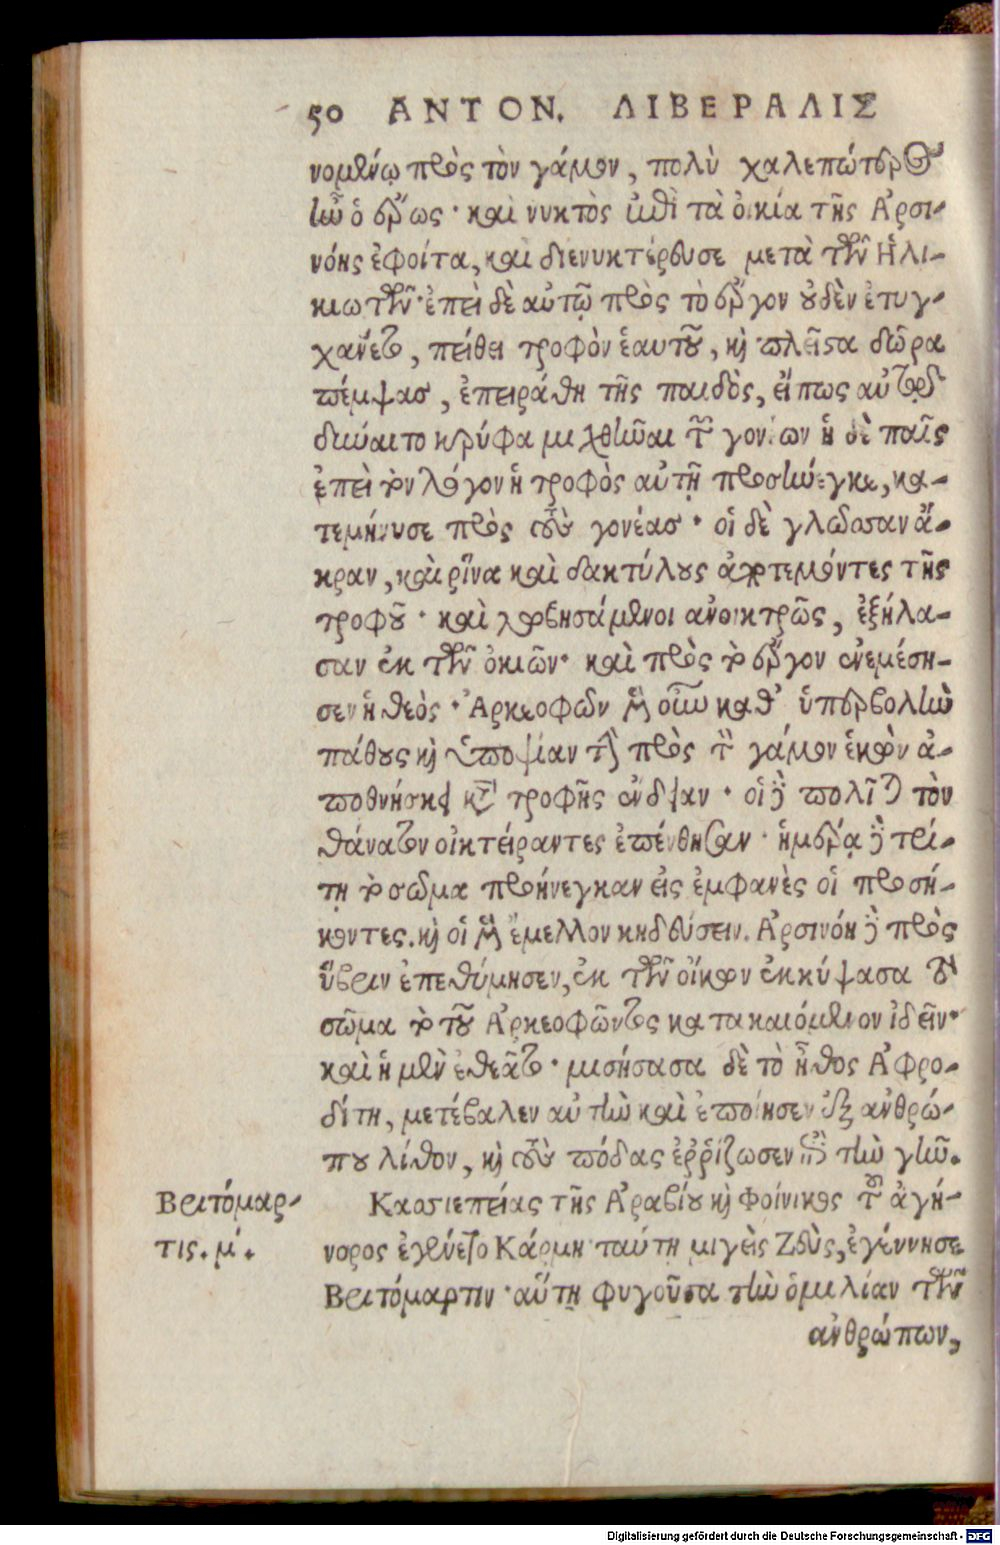 50 ΑΝΤΟΝ. ΛΙΒΕΡΑΛΙΣ
νομένῳ πρὸς τὸν γάμον, πολὺ χαλεπώτερος
ἦν ὁ ἔρως· καὶ νυκτὸς ἐπὶ τὰ οἰκία τῆς Ἀρσι-
νόης ἐφοίτα, καὶ διενυκτέρευσε μετὰ τῶν Ἡλι-
κιωτῶν· ἐπεὶ δὲ αὐτῷ πρὸς τὸ ἔργον οὐδὲν ἐτυγ-
χάνετο, πείθει τροφὸν ἑαυτοῦ, καὶ πλεῖστα δῶρα
πέμψας, ἐπειράθη τῆς παιδὸς, εἴ πως αὐτῷ
δύναιτο κρύφα μιχθῆναι τῶν γονέων ἡ δὲ παῖς
ἐπεὶ τὸν λόγον ἡ τροφὸς αὐτῇ προσήνεγκε, κα-
τεμήνυσε πρὸς τοὺς γονέας· οἱ δὲ γλῶσσαν ἄ-
κραν, καὶ ῥῖνα καὶ δακτύλους ἀποτεμόντες τῆς
τροφοῦ· καὶ λωβησάμενοι ἀνοικτρῶς, ἐξήλα-
σαν ἐκ τῶν οἰκιῶν· καὶ πρὸς τὸ ἔργον ἐνεμέση-
σεν ἡ θεὸς· Ἀρκεοφῶν καθ' ὑπερβολὴν
πάθους καὶ πρὸς τὸν γάμον ἑκὼν ἀ-
ποθνήσκει τροφῆς ἔνδειαν· οἱ δὲ πολῖται τὸν
θάνατον οἰκτείραντες ἐπένθησαν· ἡμέρᾳ δὲ τρί-
τῃ τὸ σῶμα προήνεγκαν εἰς ἐμφανὲς οἱ προσή-
κοντες. καὶ οἱ μὲν ἔμελλον κηδεύσειν. Ἀρσινόη δὲ πρὸς
ὕβριν ἐπεθύμησεν, ἐκ τῶν οἴκων ἐκκύψασα
σῶμα τὸ τοῦ Ἀρκεοφῶντος κατακαιόμενον ἰδεῖν·
καὶ ἡ μὲν ἐθεᾶτο· μισήσασα δὲ τὸ ἦθος Ἀφρο-
δίτη, μετέβαλεν αὐτὴν καὶ ἐποίησεν ἐξ ἀνθρώ-
που λίθον, καὶ τοὺς πόδας ἐρρίζωσεν ἐπὶ τὴν γῆν.
Βριτόμαρ-
τις. μʹ.
Κασσιεπείας τῆς Ἀραβίου καὶ Φοίνικος τοῦ ἀγή-
νορος ἐγένετο Κάρμη· ταύτῃ μιγεὶς Ζεὺς, ἐγέννησε
Βριτόμαρτιν· αὕτη φυγοῦσα τὴν ὁμιλίαν τῶν
ἀνθρώπων,
Digitalisierung gefördert durch die Deutsche Forschungsgemeinschaft - DFG